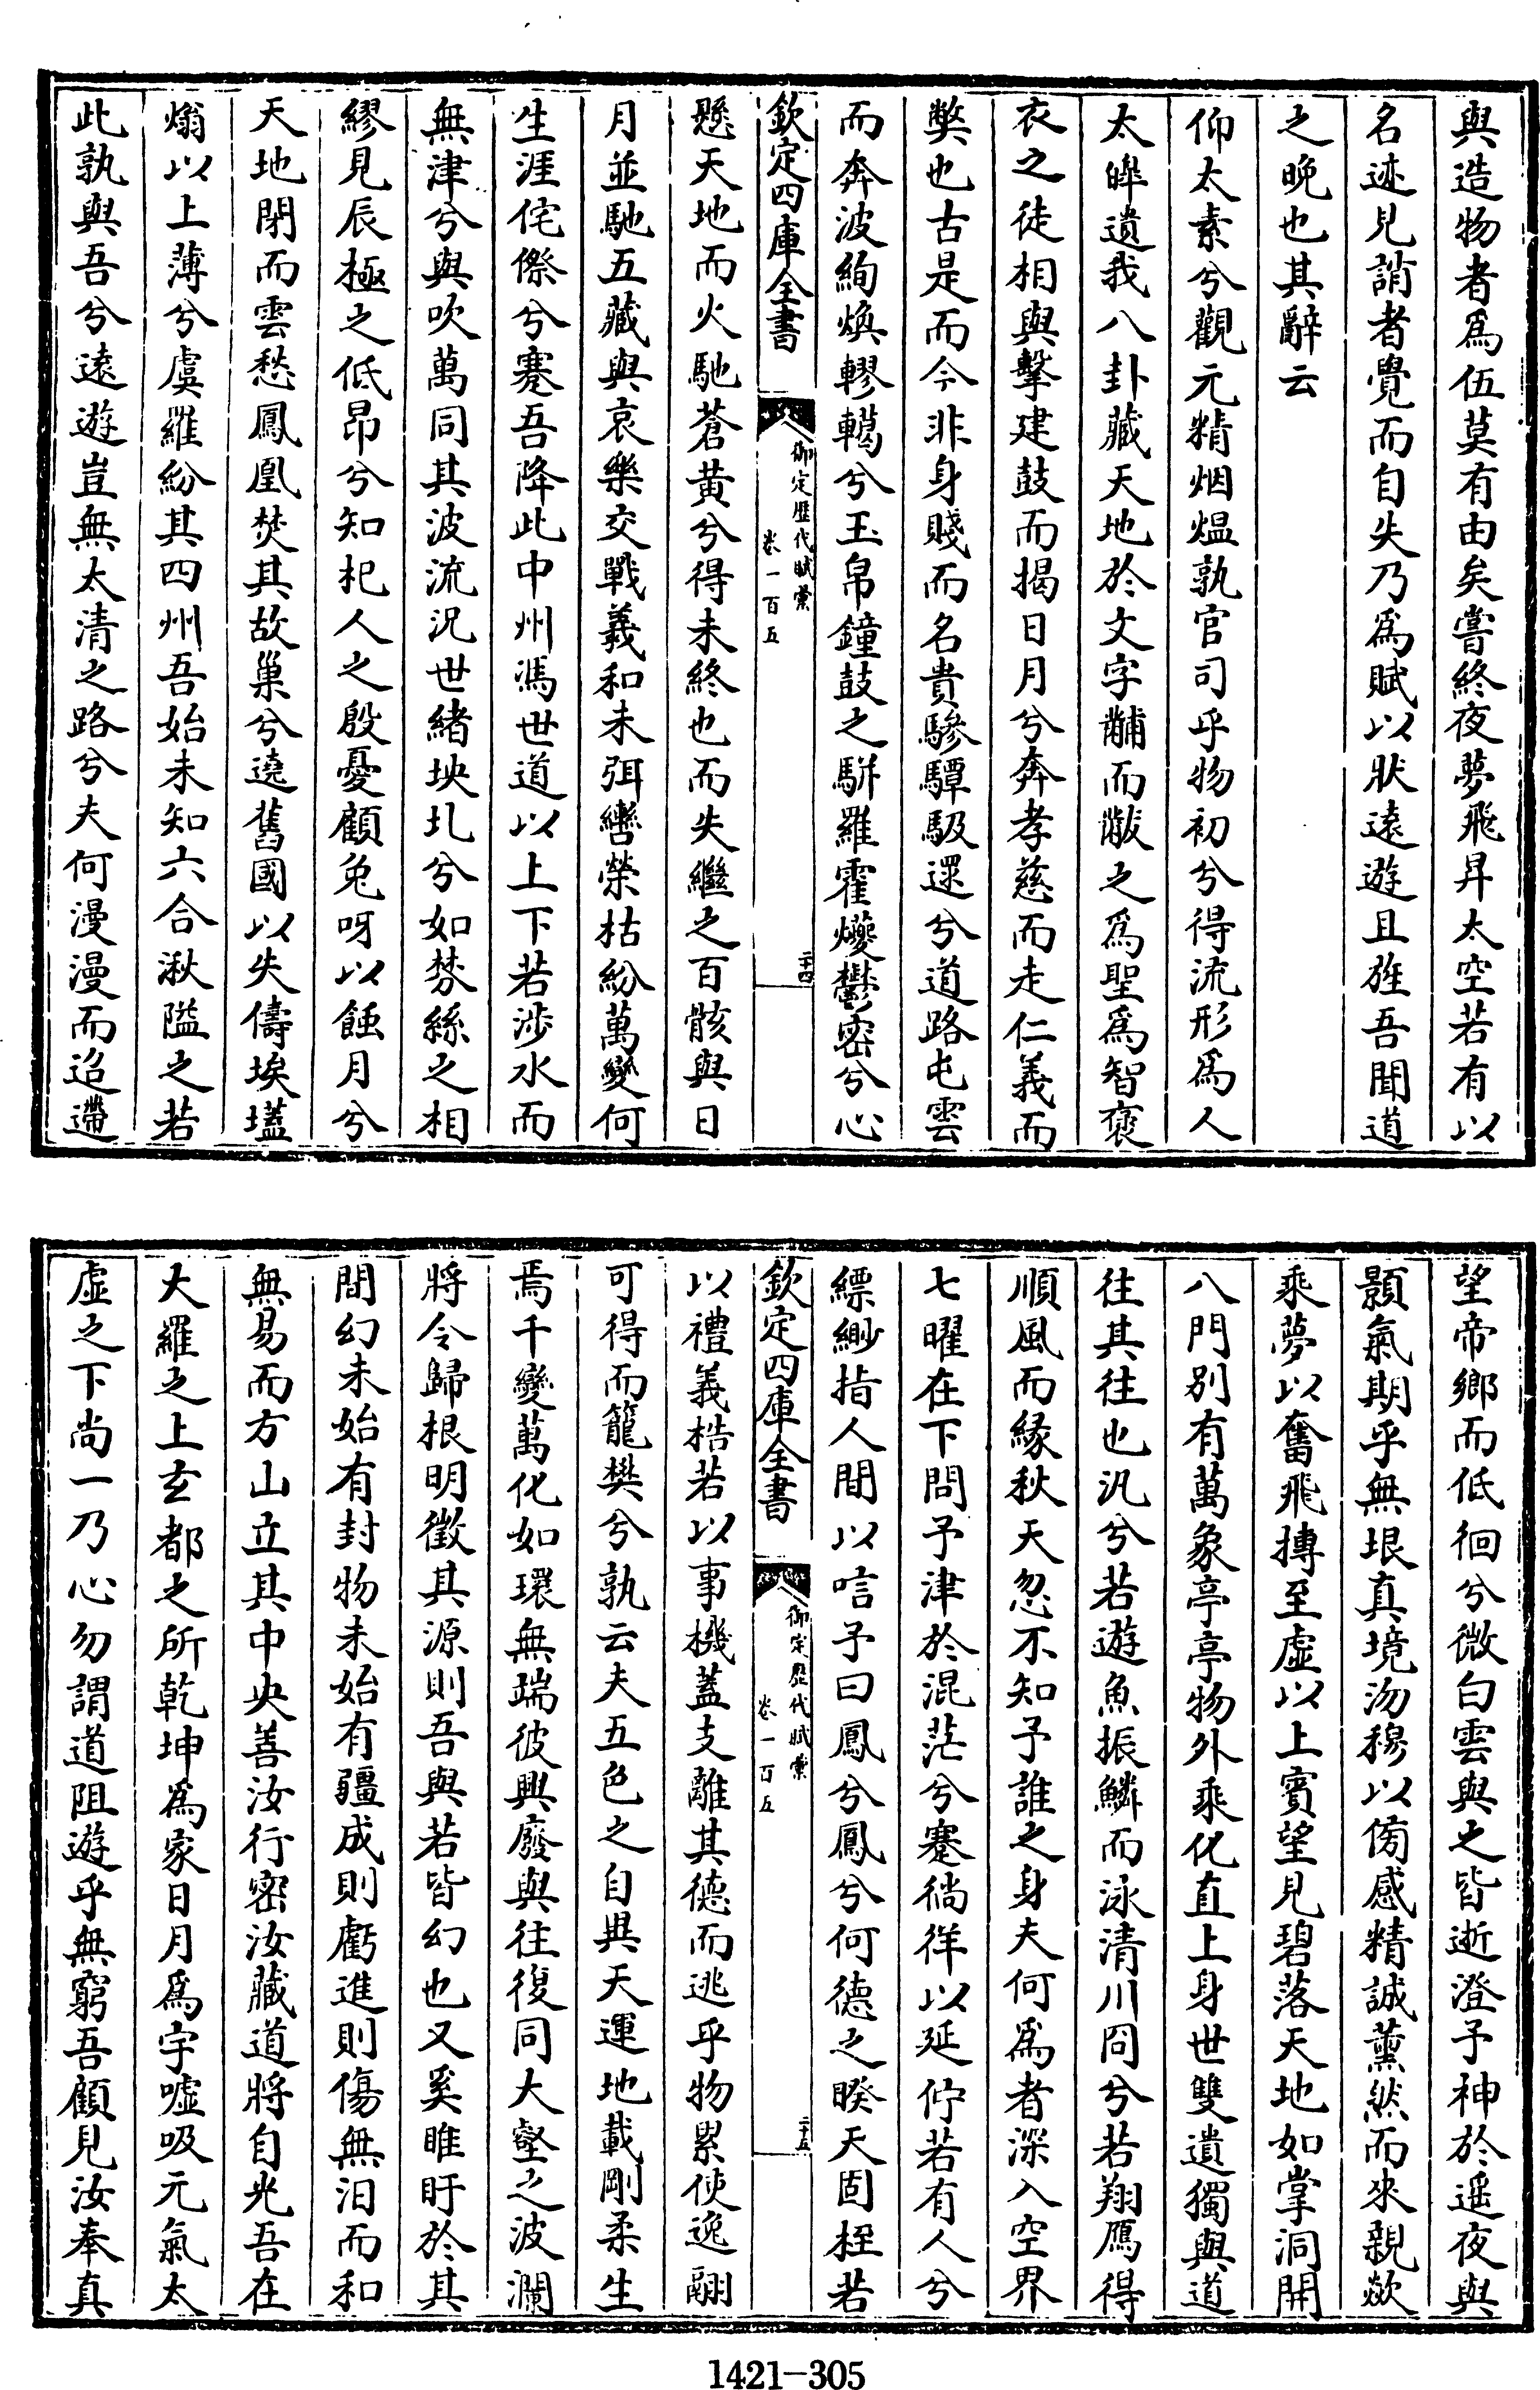 與造物者為伍莫有由矣嘗終夜夢飛昇太空若有以
名迹見誚者覺而自失乃為賦以狀遠遊且旌吾聞道
之晚也其辭云
仰太素兮觀元精烟熅孰官司乎物初兮得流形為人
太皞遺我八卦藏天地於文字黼而黻之為聖為智褒
衣之徒相與擊建鼓而揭日月兮奔孝慈而走仁義而
弊也古是而今非身賤而名貴驂驔馺遝兮道路屯雲
而奔波絢煥轇轕兮玉帛鐘鼓之駢羅霍爍鬱密兮心
欽定四庫全書
御定歷代賦彙
卷一百五
二十四
懸天地而火馳蒼黃兮得未終也而失繼之百骸與日
月並馳五藏與哀樂交戰義和未弭轡榮枯紛萬變何
生涯侘傺兮蹇吾降此中州馮世道以上下若涉水而
無津兮與吹萬同其波流況世緒坱圠兮如棼絲之相
繆見辰極之低昂兮知杞人之殷憂顧兔呀以蝕月兮
天地閉而雲愁鳳凰焚其故巢兮遶舊國以失儔埃壒
熻以上薄兮虞羅紛其四州吾始未知六合湫隘之若
此孰與吾兮遠遊豈無太清之路兮夫何漫漫而迢遰
望帝鄉而低徊兮微白雲與之皆逝澄予神於遥夜與
顥氣期乎無垠真境沕穆以傍感精誠薰然而來親歘
乘夢以奮飛摶至虛以上賓望見碧落天地如掌洞開
八門別有萬象亭亭物外乘化直上身世雙遺獨與道
往其往也汎兮若遊魚振鱗而泳清川冏兮若翔鴈得
順風而緣秋天忽不知予誰之身夫何為者深入空界
七曜在下問予津於混茫兮蹇徜徉以延佇若有人兮
縹緲指人間以唁予曰鳳兮鳳兮何德之睽天固桎若
欽定四庫全書
御定歷代賦彙
卷一百五
二十五
以禮義梏若以事機蓋支離其德而逃乎物累使逸翮
可得而籠樊兮孰云夫五色之自與天運地載剛柔生
焉千變萬化如環無端彼興廢與往復同大壑之波瀾
將令歸根明徵其源則吾與若皆幻也又奚睢盱於其
間幻未始有封物未始有疆成則虧進則傷無汨而和
無易而方山立其中央善汝行密汝藏道將自光吾在
大羅之上玄都之所乾坤為家日月為宇噓吸元氣太
虛之下尚一乃心勿謂道阻遊乎無窮吾顧見汝奉真
1421-305